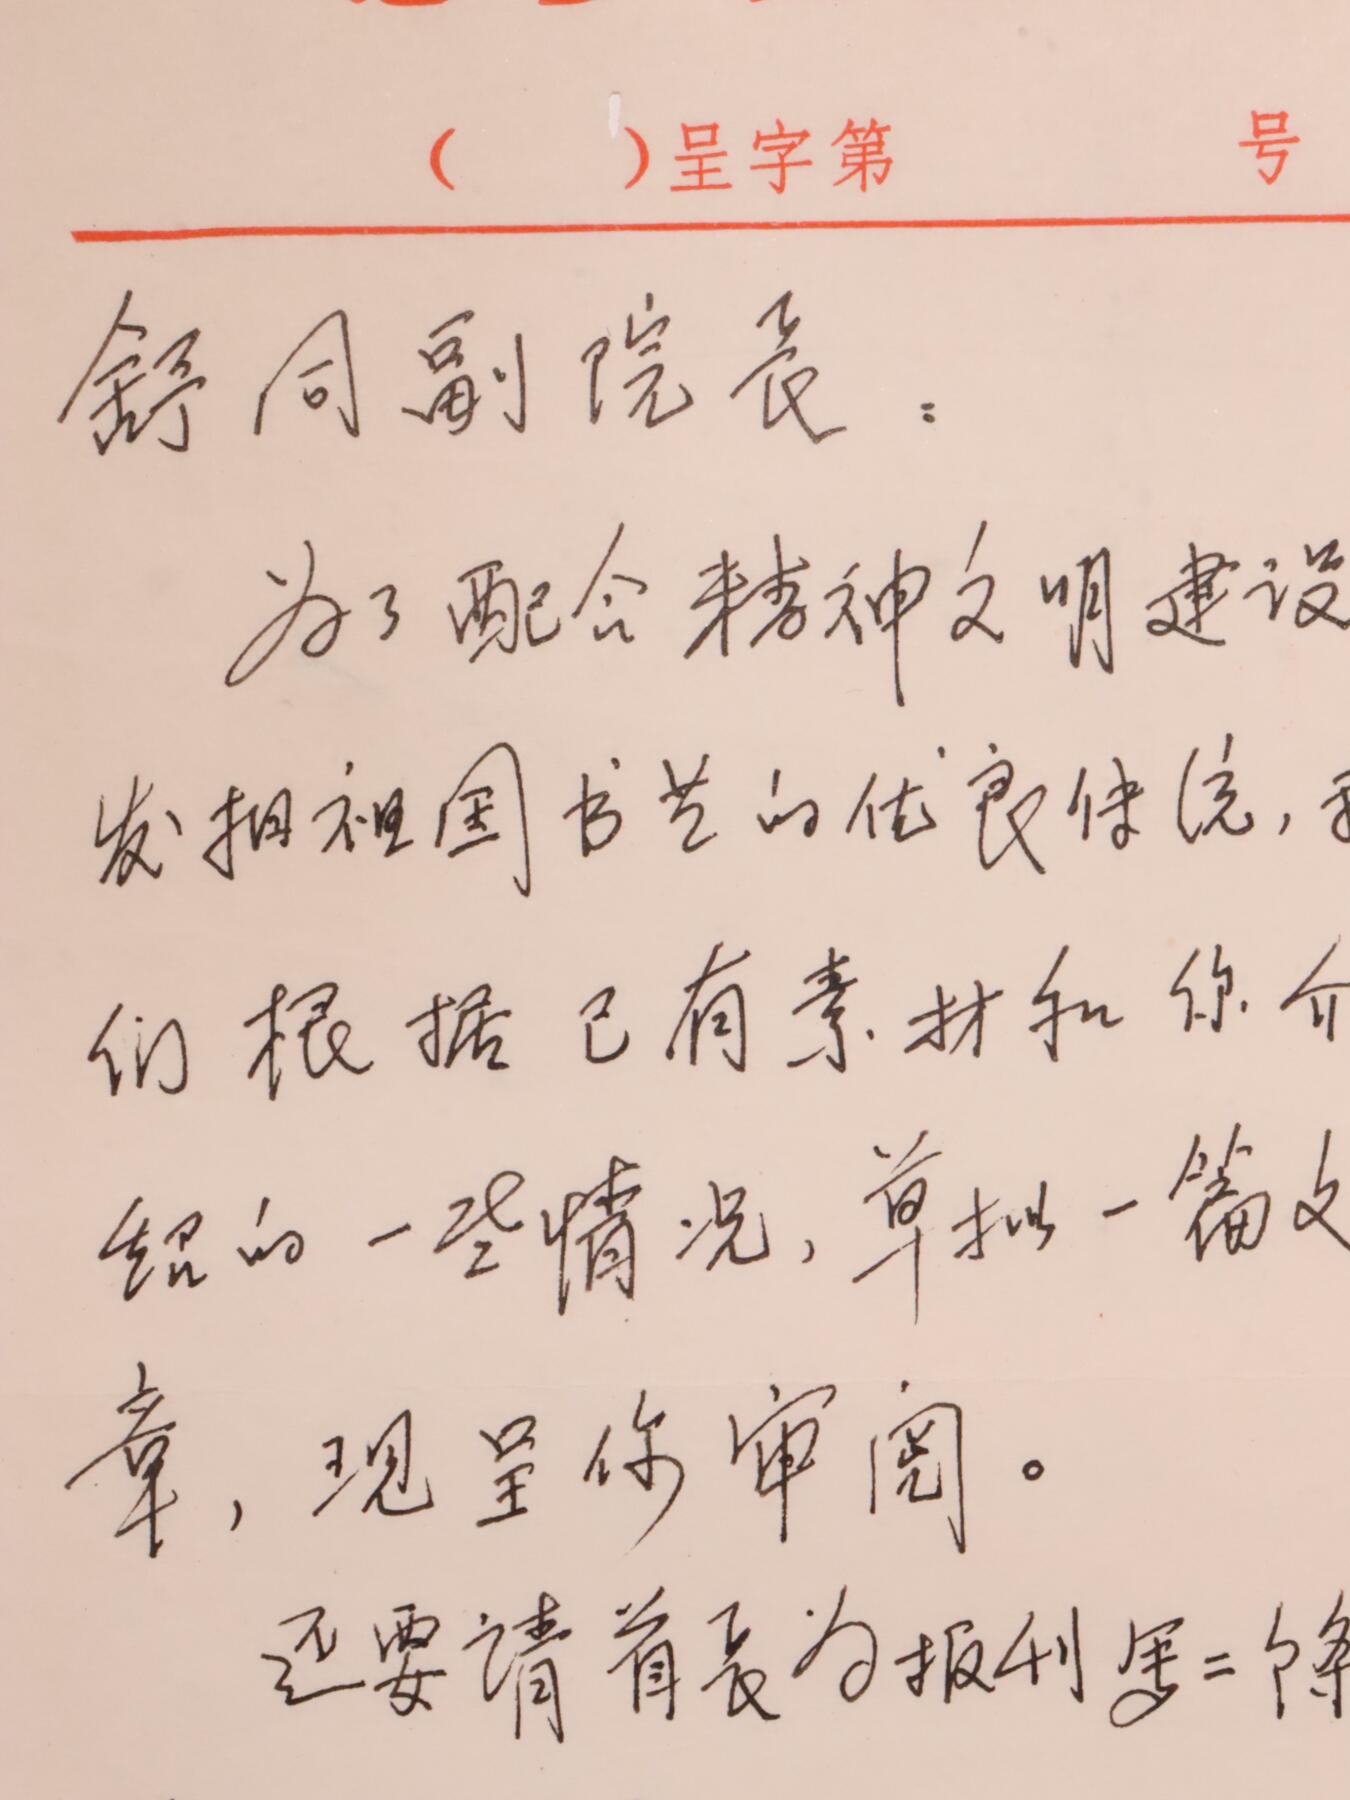 （ ）呈字第 号
舒同副院长：
为了配合精神文明建设
发扬祖国书艺的优良传统，我
们根据已有素材和你介
绍的一些情况，草拟一篇文
章，现呈你审阅。
还要请首长为报刊写二条